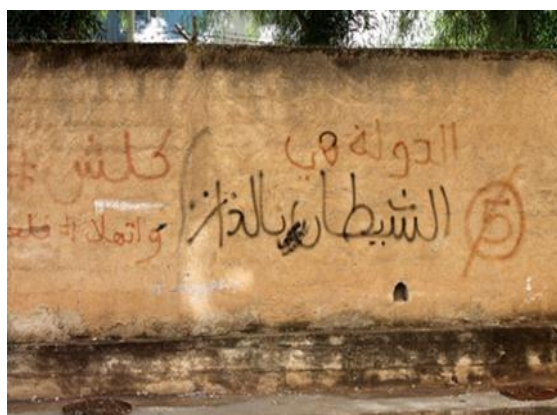 الدولة هي
الشيطان بالذات
5
كلش #
واتهلا #